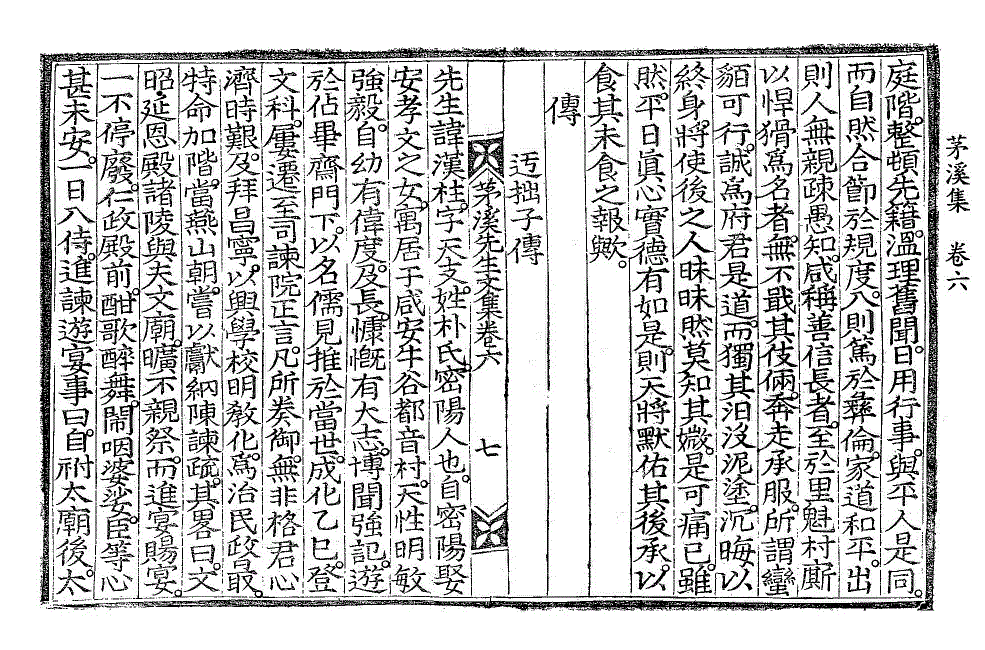 茅溪集 卷六
庭階。整頓先籍。溫理舊聞。日用行事。與平人是同。
而自然合節於規度。入則篤於彝倫。家道和平。出
則人無親疎愚知。咸稱善信長者。至於里魁村廝
以悍猾爲名者。無不戢其伎倆。奔走承服。所謂蠻
貊可行。誠爲府君是道。而獨其汨沒泥塗。沉晦以
終身。將使後之人昧昧然莫知其媺。是可痛已。雖
然。平日眞心實德有如是。則天將默佑其後承。以
食其未食之報歟。
傳
迃拙子傳
茅溪先生文集卷六 七
先生諱漢柱。字天支。姓朴氏。密陽人也。自密陽娶
安孝文之女。寓居于咸安牛谷都音村。天性明敏
強毅。自幼有偉度。及長。慷慨有大志。博聞強記。遊
於佔畢齋門下。以名儒見推於當世。成化乙巳。登
文科。屢遷至司諫院正言。凡所奏御。無非格君心
濟時艱。及拜昌寧。以興學校明敎化。爲治民政最。
特命加階。當燕山朝。嘗以獻納陳諫疏。其畧曰。文
昭,延恩殿諸陵與夫文廟。曠不親祭。而進宴賜宴。
一不停廢。仁政殿前。酣歌醉舞。鬧咽婆娑。臣等心
甚未安。一日入侍。進諫遊宴事曰。自祔太廟後。太